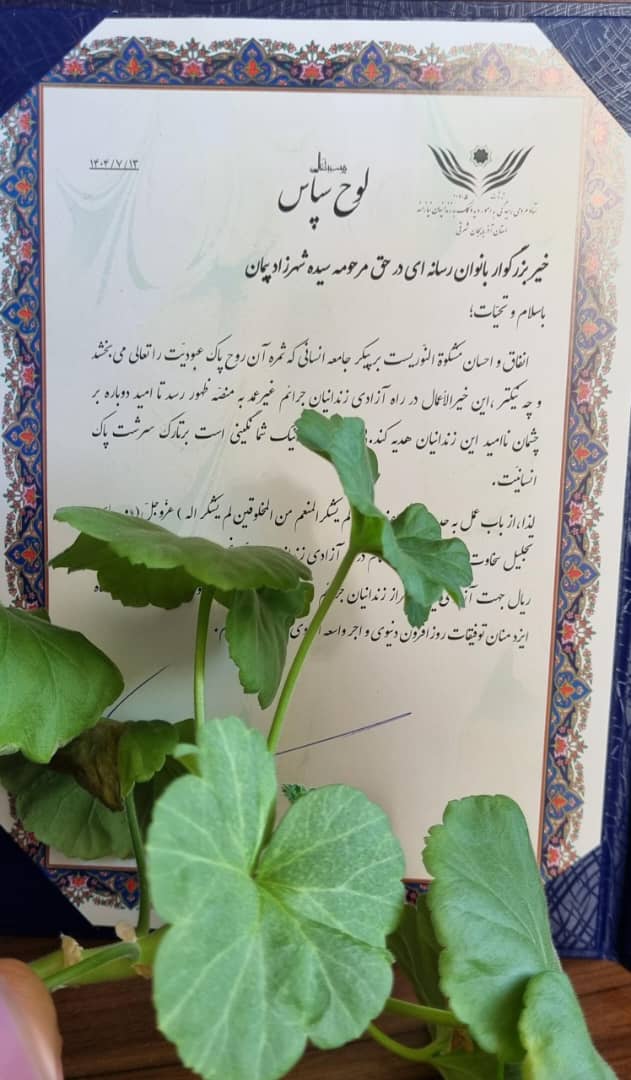 ۱۴۰۴/۷/۱۳
لوح سپاس
استان آذربایجان شرقی
خیر بزرگوار بانوان رسانه ای در حق مرحومه سیده شهرزاد پیمان
باسلام و تحیات؛
انفاق و احسان مشکوة النوریست بر پیکر جامعه انسانی که ثمره آن روح پاک عبودیت را تعالی می بخشد
و چه نیکتر، این خیرالأعمال در راه آزادی زندانیان جرائم غیرعمد به منصّه ظهور رسد تا امید دوباره بر
چشمان ناامید این زندانیان هدیه کند. نیک شما نگینی است بر تارک سرشت پاک
انسانیت.
لذا، از باب عمل به یشکر المنعم من المخلوقین لم یشکر اله ) عزّوجلّ
تجلیل سخاوت در آزادی
ریال جهت از زندانیان
ایزد منان توفیقات روزافزون دنیوی و اجر واسعه